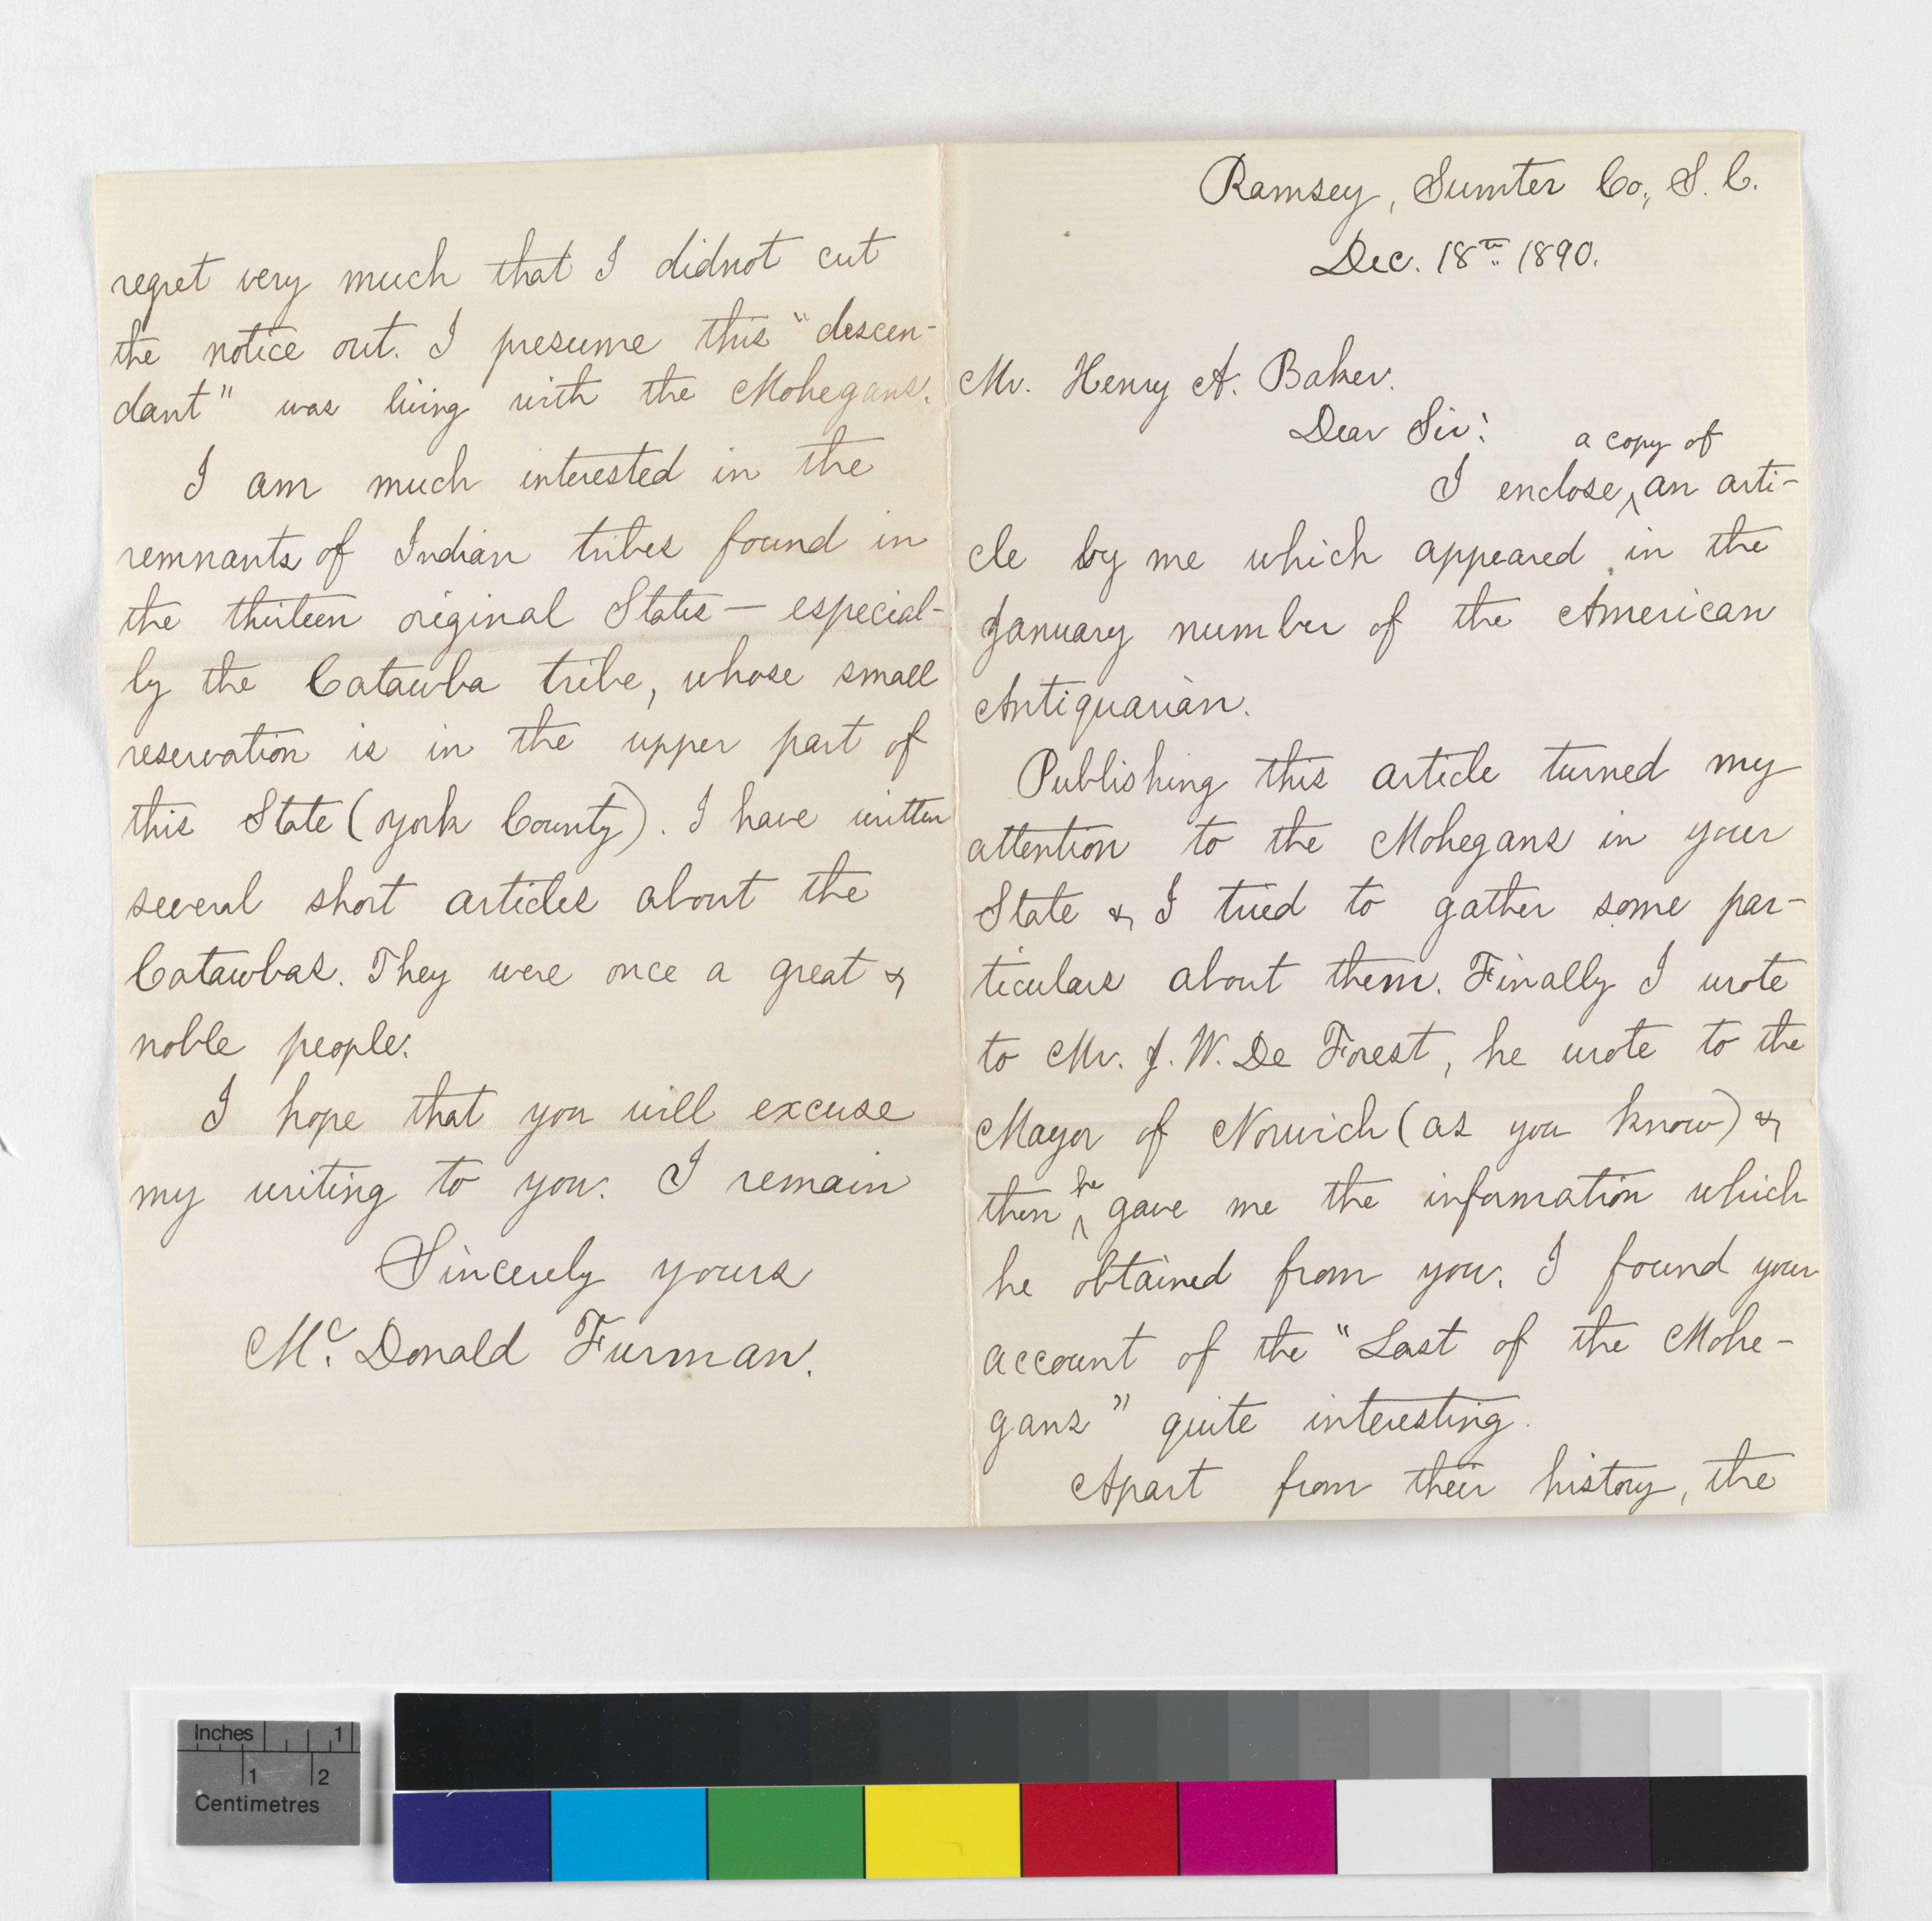 Ramsey, Sumter Co., S. C.
Dec. 18th 1890.
Mr. Henry A. Baker.
Dear Sir:
a copy of
I enclose ^ an arti-
cle by me which appeared in the
January number of the American
Antiquarian.
Publishing this article turned my
attention to the Mohegans in your
State & I tried to gather some par-
ticulars about them. Finally I wrote
to Mr. J. W. De Forest, he wrote to the
Mayor of Norwich (as you know) &
then ^he gave me the information which
he obtained from you. I found your
account of the "Last of the Mohe-
gans" quite interesting.
Apart from their history, the
regret very much that I didnot cut
the notice out. I presume this "descen-
dant" was living with the Mohegans.
I am much interested in the
remnants of Indian tribes found in
the thirteen original States — especial-
ly the Catawba tribe, whose small
reservation is in the upper part of
this State (York County). I have written
several short articles about the
Catawbas. They were once a great &
noble people.
I hope that you will excuse
my writing to you. I remain
Sincerely yours
Mc. Donald Furman.
Inches 1
1 2
Centimetres